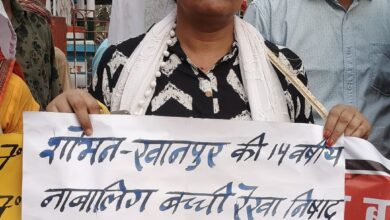 शोभन-खानपुर की 14 वर्षीय
नाबालिग बच्ची रेखा निषाद